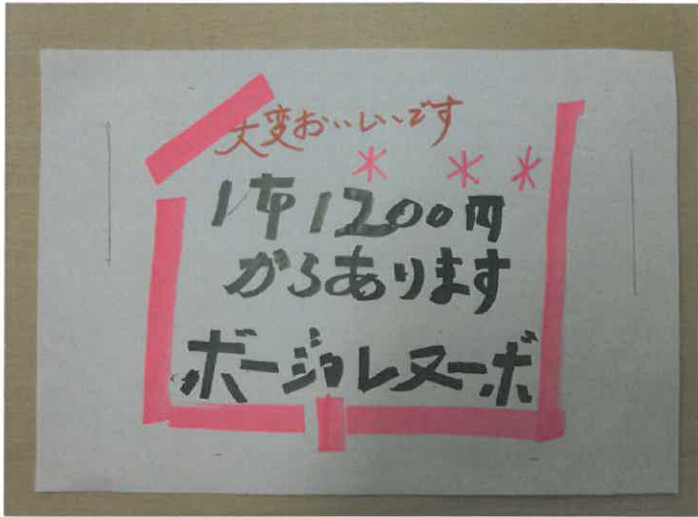 大変おいしいです
1本1200円
からあります
ボージョレヌーボ